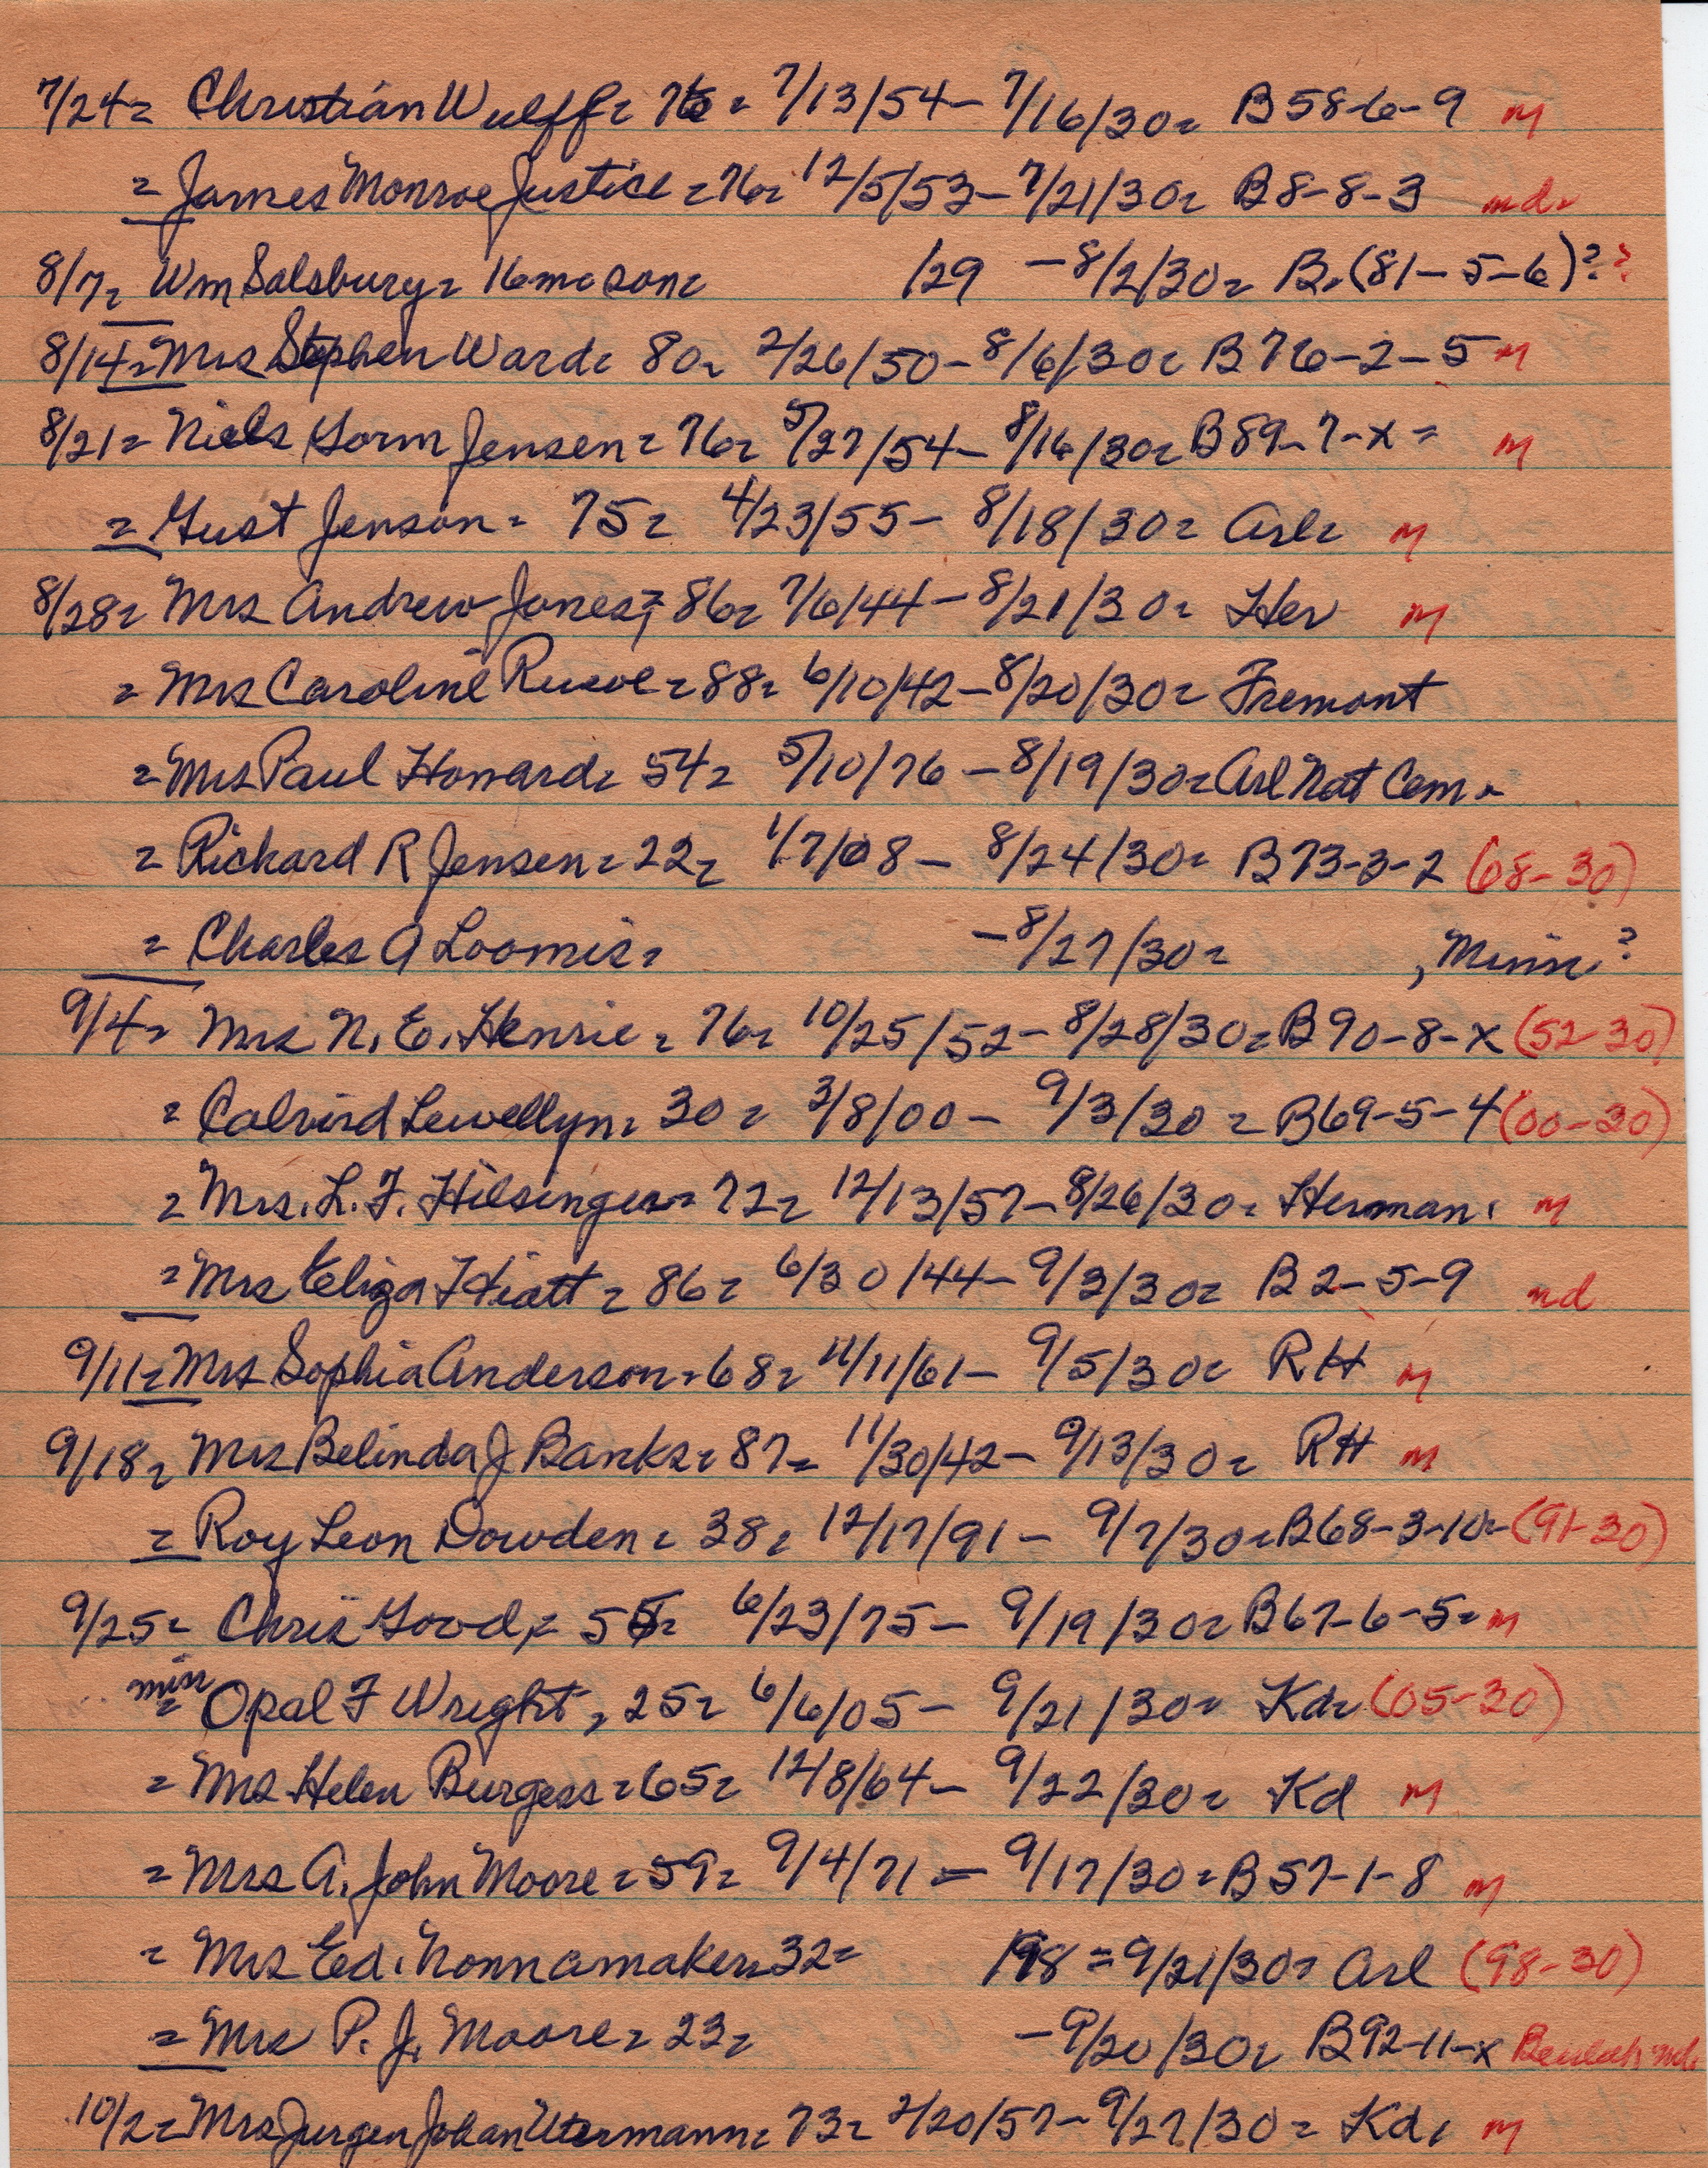 7/24= Christian Wulff= 76= 7/13/54- 7/16/30= B58-6-9 m
= James Monroe Justice =76= 12/5/53- 7/21/30= B8-8-3 md=
8/7= Wm Salsbury= 16mo son= /29 -8/2/30= B.(81-5-6)??
8/14= Mrs Stephen Ward= 80= 2/26/50-8/6/30= B76-2-5 m
8/21= Niels Gorm Jensen= 76= 5/27/54- 8/16/30= B89-7-x= m
= Gust Jenson= 75= 4/23/55- 8/18/30= Arl= m
8/28= Mrs Andrew Jones= 86= 7/6/44-8/21/30= Her m
= Mrs Caroline =88= 6/10/42-8/20/30= Fremont
= Mrs Paul Howard= 54= 5/10/76-8/19/30= Arl Nat Cem.
= Richard R Jensen=22= 1/7/08- 8/24/30= B73-3-2 (08-30)
= Charles A Loomis= -8/27/30= , Minn.?
9/4= Mrs N. E. Henrie= 76= 10/25/52-8/28/30= B90-8-x (52-30)
= Calvird Lewellyn= 30= 3/8/00- 9/3/30= B69-5-4 (00-30)
= Mrs. L. F. Hilsinger= 72= 12/13/57-8/26/30= Herman. m
= Mrs Eliza Hiatt= 86= 6/30/44-9/3/30= B2-5-9 md
9/11= Mrs Sophia Anderson=68= 11/11/61- 9/5/30= RH m
9/18= Mrs Belinda J Banks= 87= 11/30/42- 9/13/30= RH m
= Roy Leon Dowden= 38= 12/17/91- 9/7/30= B68-3-10= (91-30)
9/25= Chris Good,= 55= 6/23/75- 9/19/30= B67-6-5= m
min = Opal F Wright, 25= 6/6/05- 9/21/30= Kd= (05-30)
= Mrs Helen Burgess=65= 12/8/64- 9/22/30= Kd m
= Mrs A. John Moore=59= 9/4/71- 9/17/30= B57-1-8 m
= Mrs Ed. Nonnamaker=32= /98=9/21/30= Arl (98-30)
= Mrs P. J. Moore= 23= -9/20/30= B92-11-x Beulah md.
10/2= Mrs Jurgen Johan Utermann= 73= 2/20/57-9/27/30= Kd, m